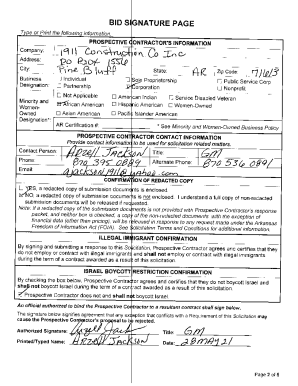 BID SIGNATURE PAGE
Type or Print the following information.
PROSPECTIVE CONTRACTOR'S INFORMATION
Company: 1911 Construction Co Inc
Address: PO Box 1556
City: Pine Bluff State: AR Zip Code: 71613
Business Designation: Individual Sole Proprietorship Public Service Corp
Partnership Corporation Nonprofit
Minority and Women-Owned Designation* Not Applicable American Indian Service Disabled Veteran
African American Hispanic American Women-Owned
Asian American Pacific Islander American
AR Certification #: * See Minority and Women-Owned Business Policy
PROSPECTIVE CONTRACTOR CONTACT INFORMATION
Provide contact information to be used for solicitation related matters.
Contact Person: Arzell Jackson Title: GM
Phone: 870 395 0889 Alternate Phone: 870 536 0891
Email: ajackson1911@yahoo.com
CONFIRMATION OF REDACTED COPY
YES, a redacted copy of submission documents is enclosed.
NO, a redacted copy of submission documents is not enclosed. I understand a full copy of non-redacted submission documents will be released if requested.
Note: If a redacted copy of the submission documents is not provided with Prospective Contractor's response packet, and neither box is checked, a copy of the non-redacted documents, with the exception of financial data (other than pricing), will be released in response to any request made under the Arkansas Freedom of Information Act (FOIA). See Solicitation Terms and Conditions for additional information.
ILLEGAL IMMIGRANT CONFIRMATION
By signing and submitting a response to this Solicitation, Prospective Contractor agrees and certifies that they do not employ or contract with illegal immigrants and shall not employ or contract with illegal immigrants during the term of a contract awarded as a result of this solicitation.
ISRAEL BOYCOTT RESTRICTION CONFIRMATION
By checking the box below, Prospective Contractor agrees and certifies that they do not boycott Israel and shall not boycott Israel during the term of a contract awarded as a result of this solicitation.
Prospective Contractor does not and shall not boycott Israel.
An official authorized to bind the Prospective Contractor to a resultant contract shall sign below.
The signature below signifies agreement that any exception that conflicts with a Requirement of this Solicitation may cause the Prospective Contractor's proposal to be rejected.
Authorized Signature: Arzell Jack Title: GM
Printed/Typed Name: Arzell Jackson Date: 28MAY21
Page 2 of 5